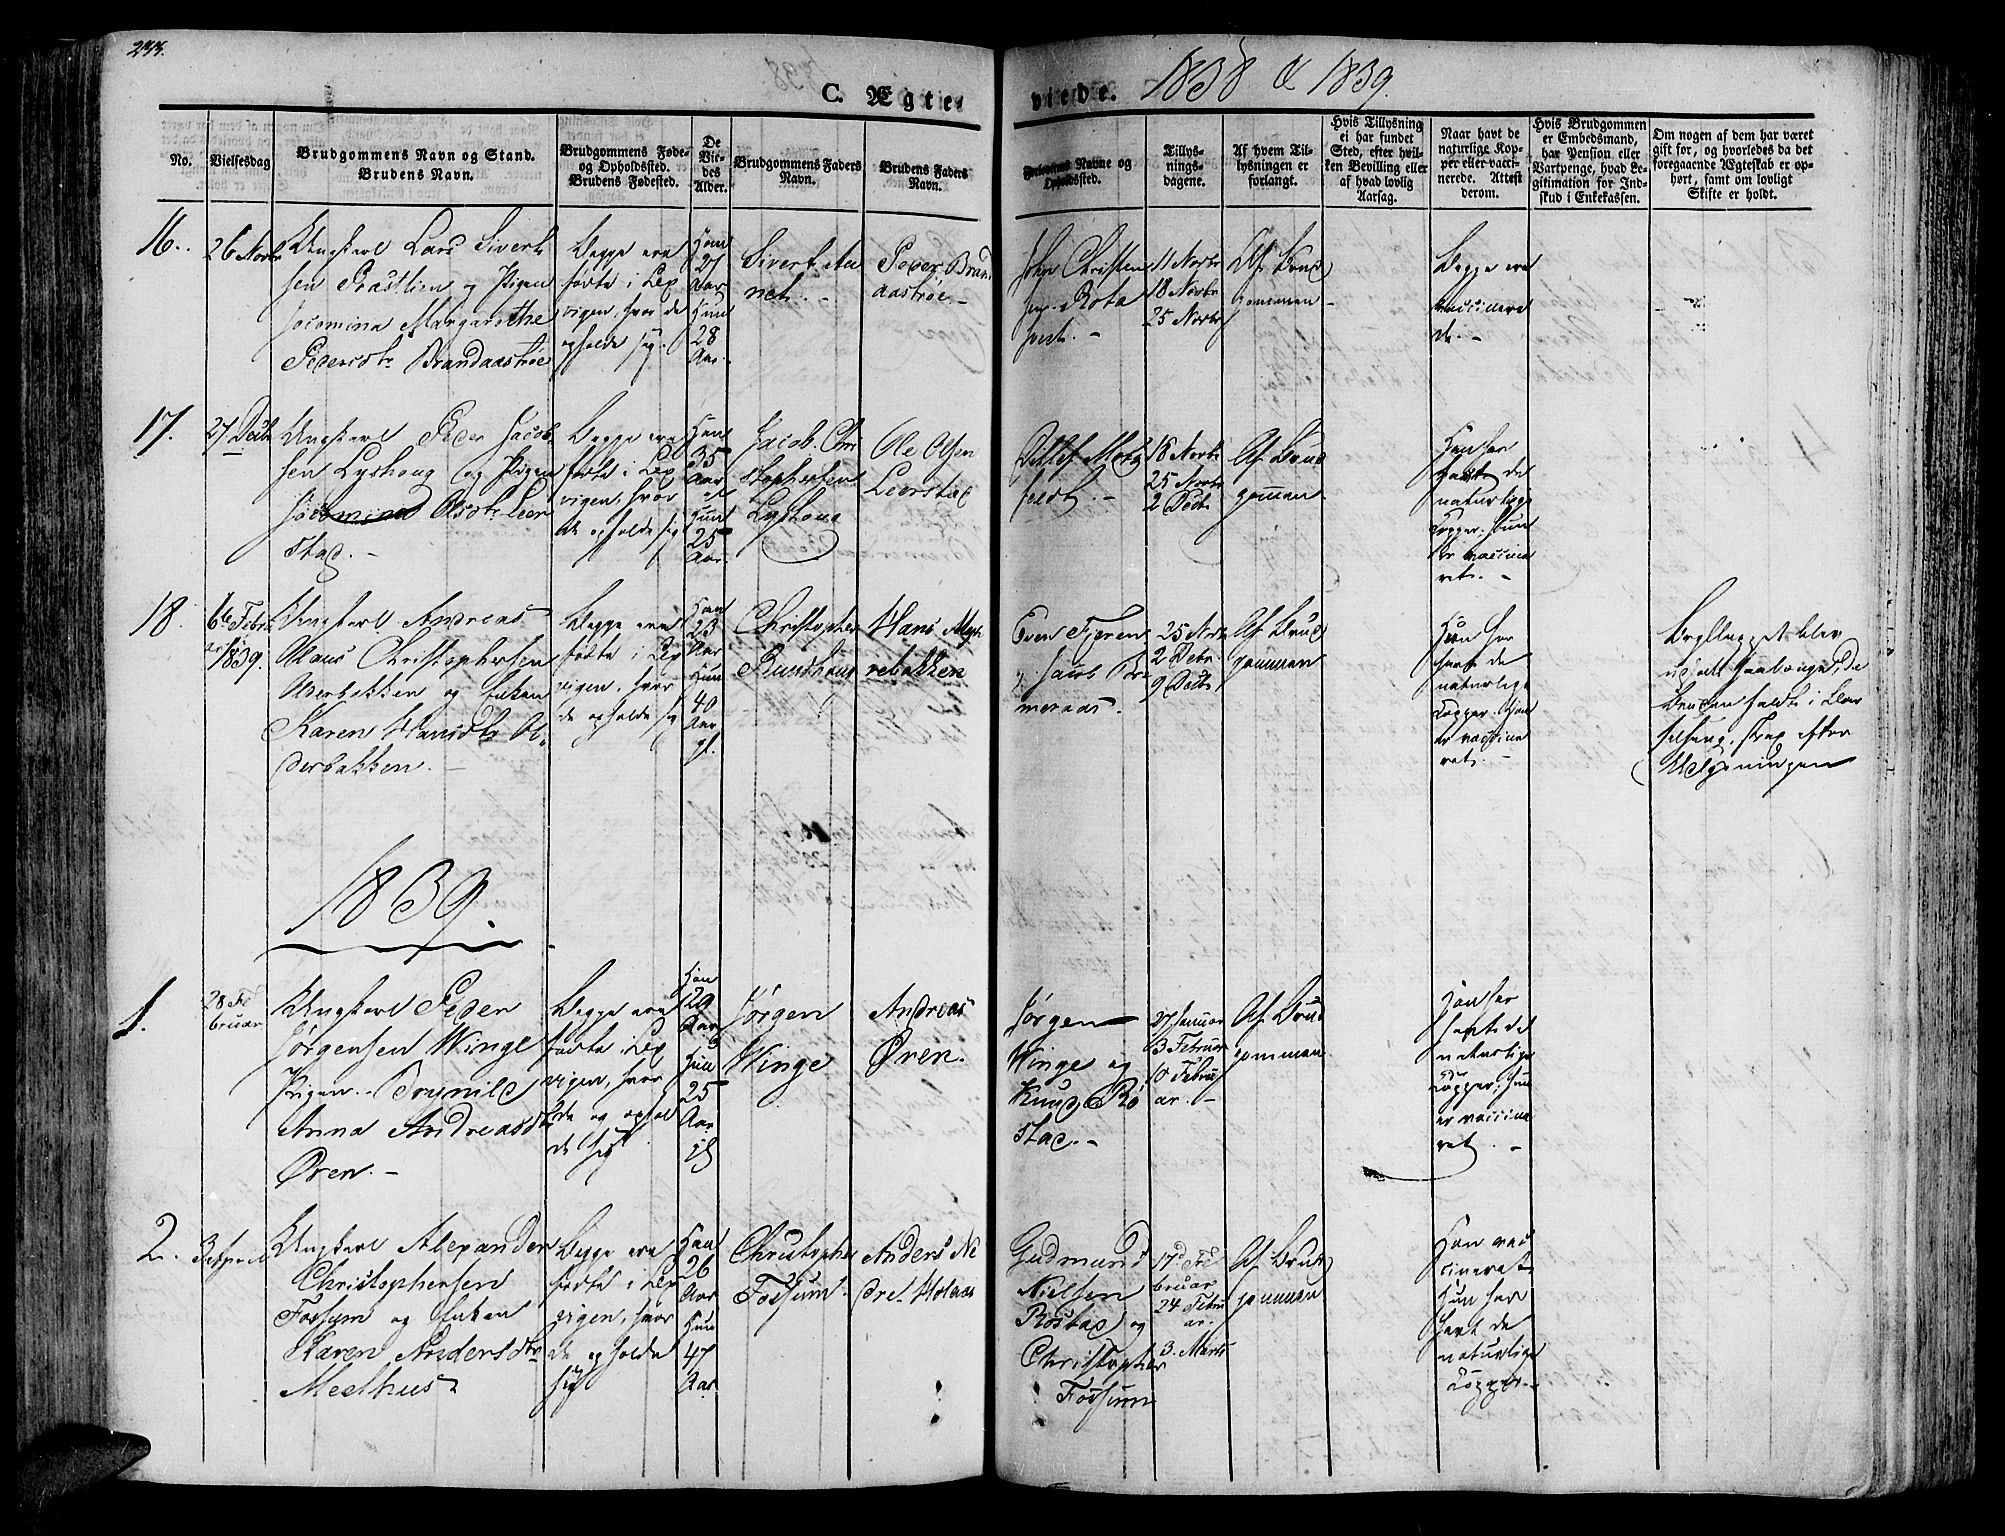 233.
C. Ægte-
viede.
1838 & 1839.
No.
Vielsesdag
Brudgommens Navn og Stand.
Brudens Navn.
Brudgommens Føde-
og Opholdssted.
Brudens Fødested.
De
Vie-
des
Alder.
Brudgommens Faders
Navn.
Brudens Faders
Navn.
Forlovernes Navne og
Opholdssted.
Tillys-
nings-
dagene.
Af hvem Til-
lysningen er
forlangt.
Hvis Tillysning
ei har fundet
Sted, efter hvil-
ken Bevilling eller
af hvad lovlig
Aarsag.
Naar havt de
naturlige Kop-
per eller vacci-
nerede. Attest
derom.
Hvis Brudgommen
er Embedsmand,
har Pension eller
Vartpenge, hvad Le-
gitimation for Ind-
skud i Enkekassen.
Om nogen af dem har været
gift før, og hvorledes da det
foregaaende Ægteskab er op-
hørt, samt om lovligt
Skifte er holdt.
16.
26 Novbr
Ungkarl Lars Sivert-
sen og Pigen
Jocomina Margarethe
Pedersdtr Brandaastrøe
Begge ere
fødte i Lex
vigen, hvor de
opholde sig.
Han
27
Aar
Hun
28
Aar.
Sivert Aa
net. -
Peder Brand
aastrøe -
John Christen
sen Rota
11 Novbr
18 Novbr
25 Novbr
Af Brud
gommen -
Begge ere
vaccinere
de. -
17.
27 Decbr
Ungkarl Peder Jacob-
sen Lyshoug og Pigen
Jocomina Olsdtr Leer
stad. -
Begge ere
fødte i Lex
vigen, hvor
de opholde sig
Han
35
Aar
Hun
25
Aar.
Jacob Chri
stophersen
Lyshoug
Ole Olsen
Leerstad
18 Novbr
25 Novbr
2 Decbr
Af Brud
gommen
Han har
havt de
naturlige
Kopper, hun
er vaccine
ret. -
18.
6te Febr
1839.
Ungkarl Andreas
Christophersen
og Enken
Karen Hansdtr Al
derbakken. -
Begge ere
fødte i Lex
vigen, hvor
de opholde sig
Han
23
Aar
Hun
40
Aar
gl.
Christopher
Rundhoug
Hans
rebakken
Even Fjeren
Jacob
meraas.
25 Novbr
2 Debr.
9 Decbr
Af Brud
gommen
Hun har
havt de
naturlige
Kopper. Han
er vaccine
ret. -
Brylluppet blev
opsatt saalænge, da
Bruden faldt i Bar
selseng, strax efter
Tillysningen
1839.
1.
28 Fe
bruar
Ungkarl Peder
Jørgensen Winge
Pigen Brynild
Anna Andreasdtr
Øren. -
Begge ere
fødte i Lex
vigen, hvor
de og ophol
de sig
Han
29
Aar
Hun
25
Aar
gl
Jørgen
Winge
Andreas
Øren.
Jørgen
Winge og
Knud Rø
stad. -
27 Januar
3 Februar
10 Febru
ar. -
Af Brud
gommen
Han har
havt de
naturlige
Kopper, hun
er vaccine
ret. -
2.
3 April
Ungkarl Alexander
Christophersen
Fossum og Enken
Karen Andersdtr
Meelhus
Begge ere
fødte i Lex
vigen, hvor
de opholde
sig
Han
26
Aar
Hun
47
Aar
Christopher
Fossum.
Anders Ne
dre Holaas
Gudmund
Nielsen
Røstad og
Christopher
Fossum
17d Fe
bruar
24 Febru
ar.
3. Marts
Af Brud
gommen
Han vac
cineret
Hun har
havt de
naturlige
Kopper. -